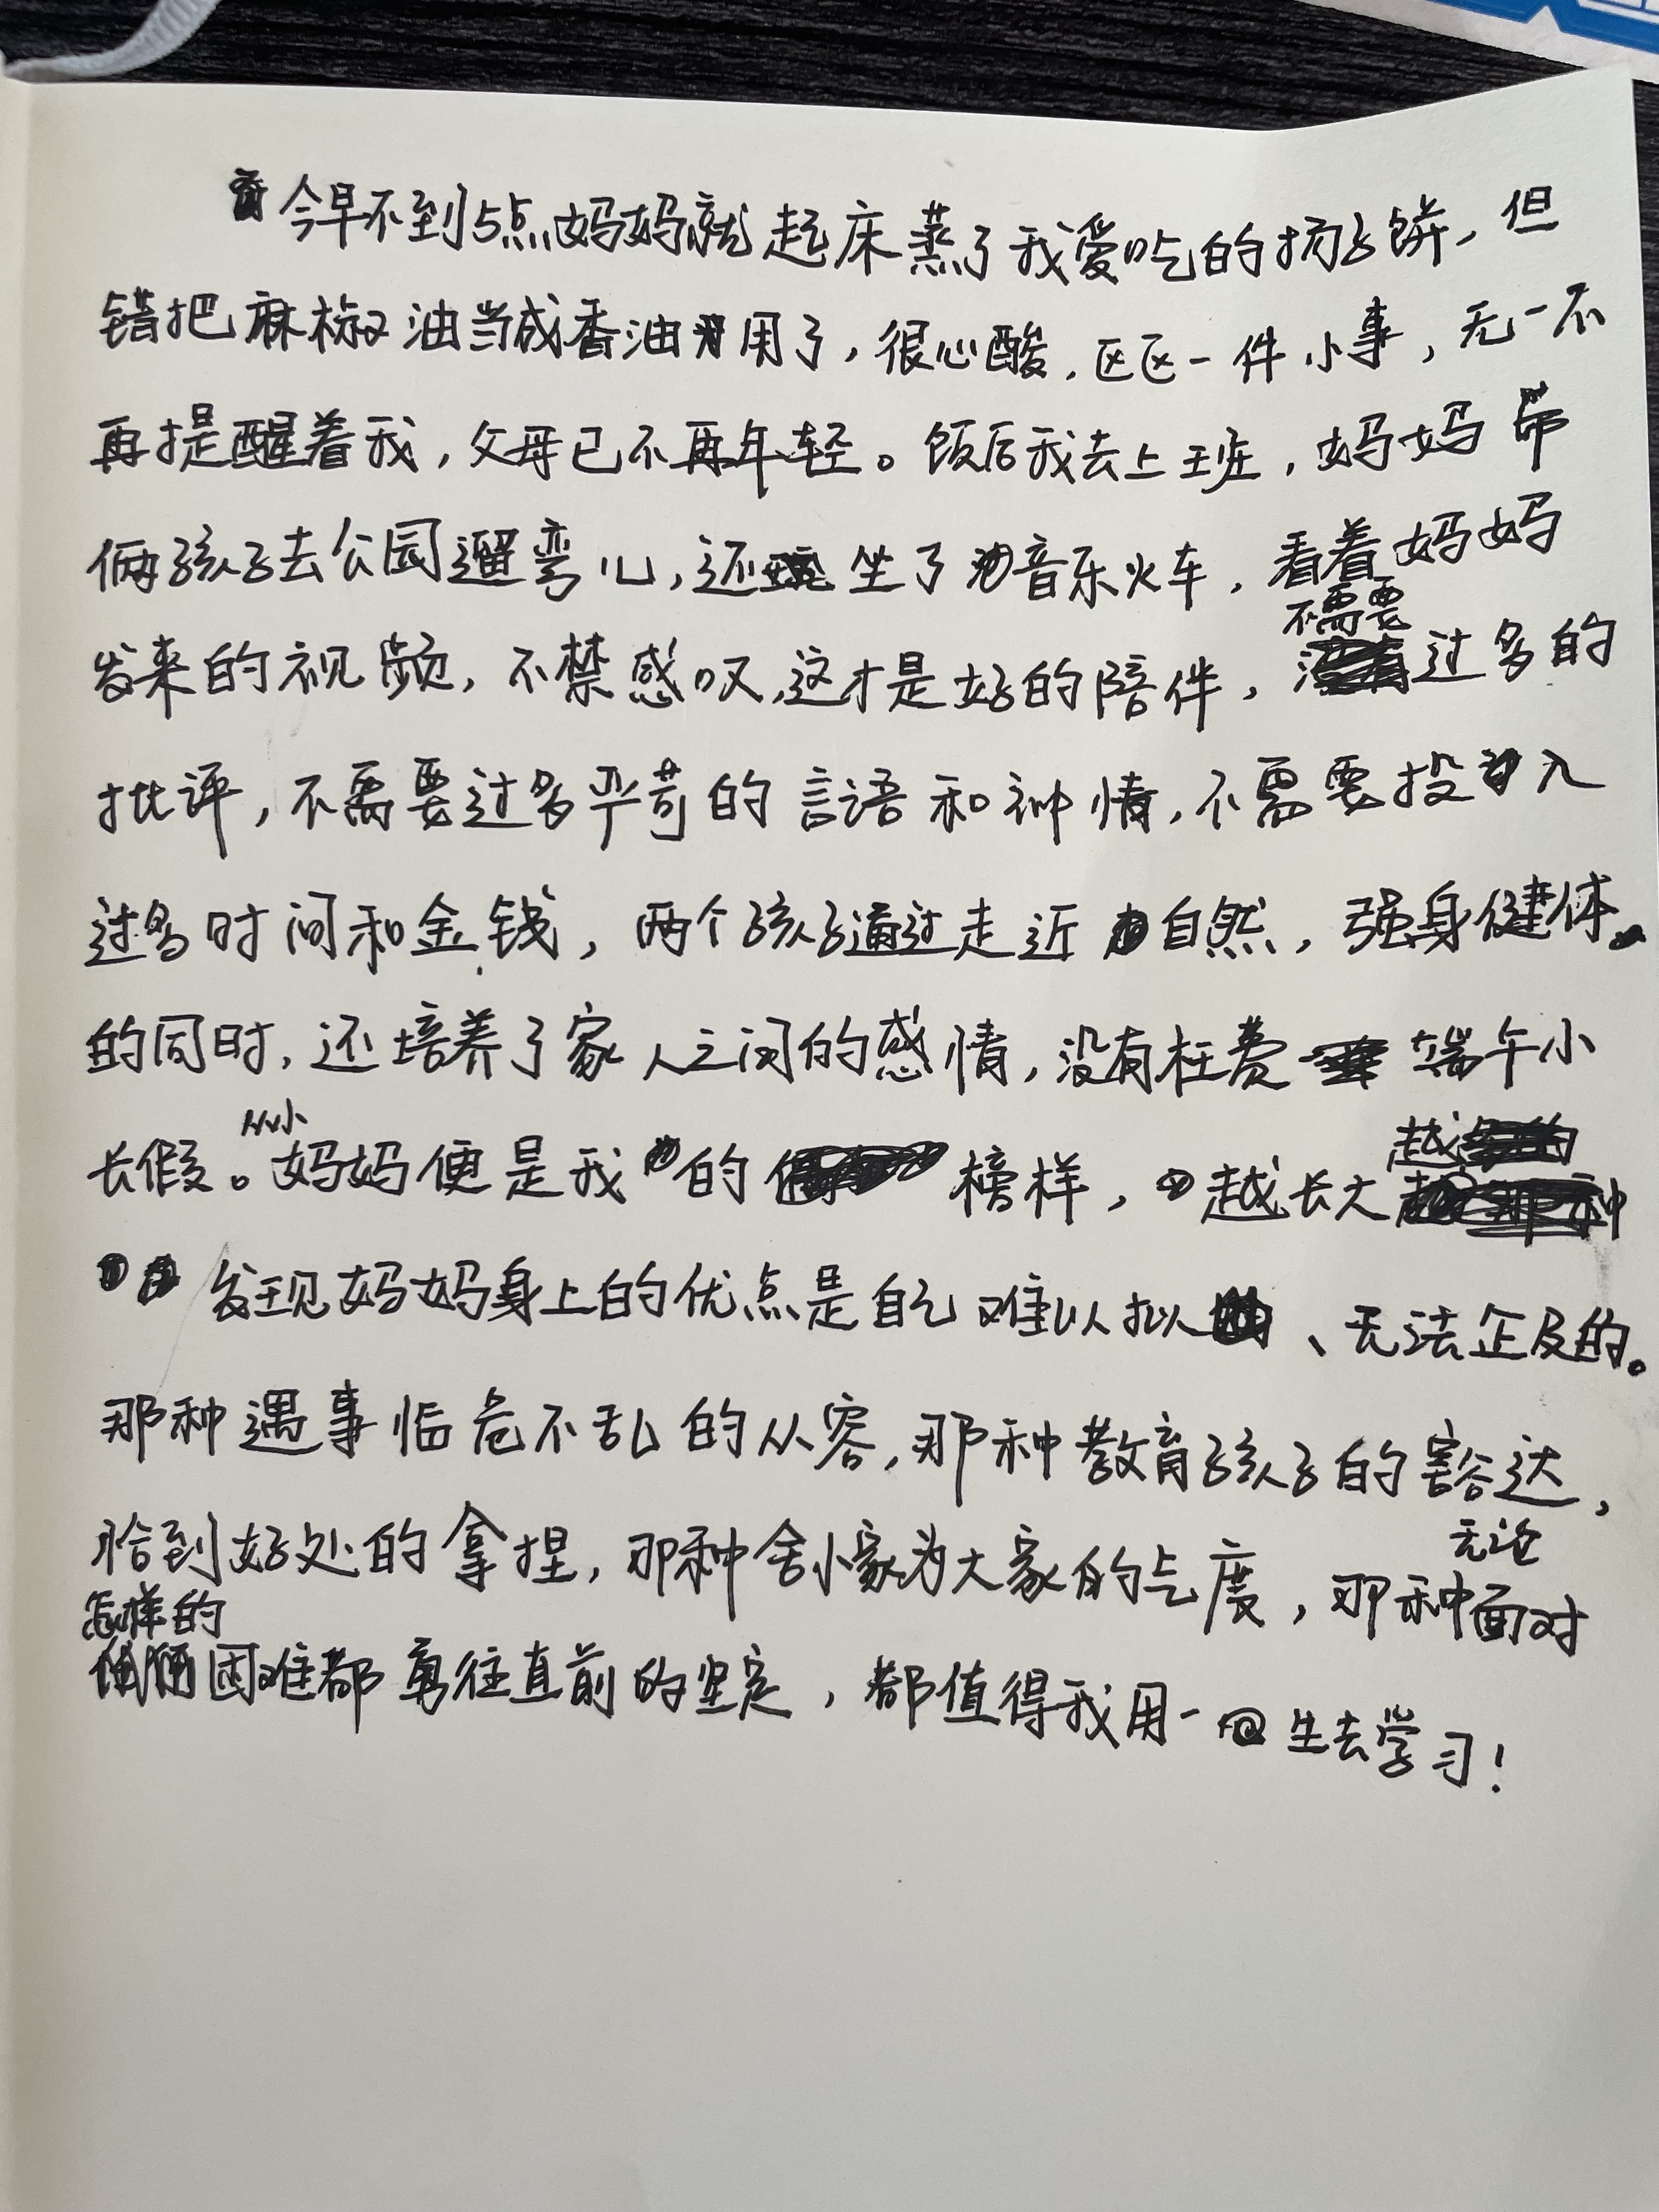 今早不到5点妈妈就起床蒸了我爱吃的扬子饼,但
错把麻椒油当成香油用了,很心酸,区区一件小事,无一不
再提醒着我,父母已不再年轻。饭后我去上班,妈妈带
俩孩子去公园遛弯儿,还坐了音乐火车,看着妈妈
发来的视频,不禁感叹,这才是好的陪伴,不需要过多的
批评,不需要过多严苛的言语和神情,不需要投入
过多时间和金钱,两个孩子通过走近自然,强身健体
的同时,还培养了家人之间的感情,没有枉费端午小
长假。从小妈妈便是我的榜样,越长大越
发现妈妈身上的优点是自己难以拟、无法企及的。
那种遇事临危不乱的从容,那种教育孩子的豁达,
恰到好处的拿捏,那种舍小家为大家的气度,那种无论面对
怎样的困难都勇往直前的坚定,都值得我用一生去学习!